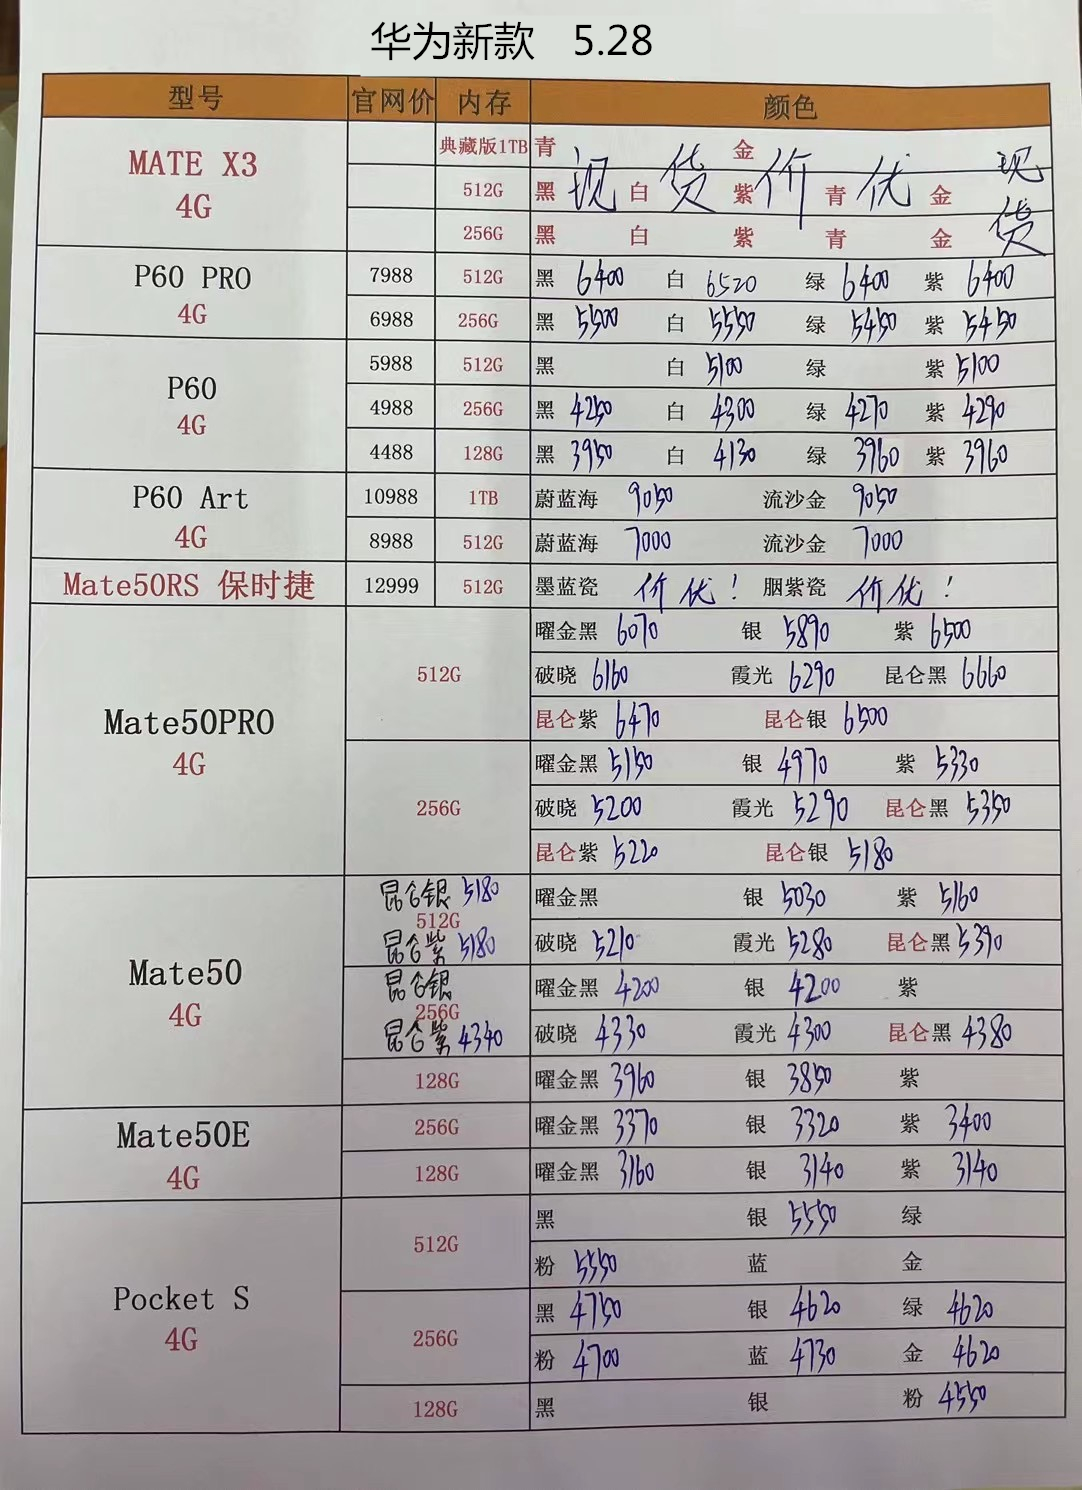 华为新款 5.28
型号 官网价 内存 颜色
MATE X3 4G 典藏版1TB 青 金
512G 黑 白 紫 青 金
256G 黑 白 紫 青 金
现货价优 现货
P60 PRO 4G 7988 512G 黑 6400 白 6520 绿 6400 紫 6400
6988 256G 黑 5500 白 5550 绿 5450 紫 5450
P60 4G 5988 512G 黑 白 5100 绿 紫 5100
4988 256G 黑 4250 白 4300 绿 4270 紫 4290
4488 128G 黑 3950 白 4130 绿 3960 紫 3960
P60 Art 4G 10988 1TB 蔚蓝海 9050 流沙金 9050
8988 512G 蔚蓝海 7000 流沙金 7000
Mate50RS 保时捷 12999 512G 墨蓝瓷 价优! 胭紫瓷 价优!
Mate50PRO 4G 512G 曜金黑 6070 银 5890 紫 6500
破晓 6160 霞光 6290 昆仑黑 6660
昆仑紫 6470 昆仑银 6500
256G 曜金黑 5150 银 4970 紫 5330
破晓 5200 霞光 5290 昆仑黑 5350
昆仑紫 5220 昆仑银 5180
Mate50 4G 昆仑银 5180 512G 昆仑紫 5180 曜金黑 银 5030 紫 5160
破晓 5210 霞光 5280 昆仑黑 5390
昆仑银 256G 昆仑紫 4340 曜金黑 4200 银 4200 紫
破晓 4330 霞光 4300 昆仑黑 4380
128G 曜金黑 3960 银 3850 紫
Mate50E 4G 256G 曜金黑 3370 银 3320 紫 3400
128G 曜金黑 3160 银 3140 紫 3140
Pocket S 4G 512G 黑 银 5550 绿
粉 5550 蓝 金
256G 黑 4750 银 4620 绿 4620
粉 4700 蓝 4730 金 4620
128G 黑 银 粉 4550